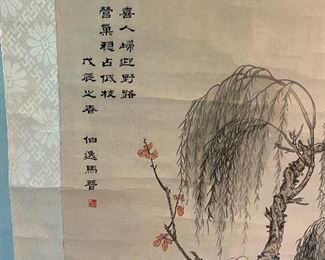 喜人歸迎野路
營巢穩占低枝
戊辰之春
伯逸馬晉